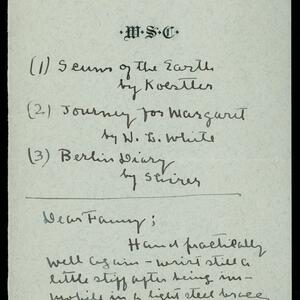 W·S·C·
(1) Scum of the Earth
by Koestler
(2) Journey for Margaret
by W. L. White
(3) Berlin Diary
by Shirer
Dear Fanny;
Hand practically
well again - wrist still a
little stiff after being im-
mobile in a light steel brace